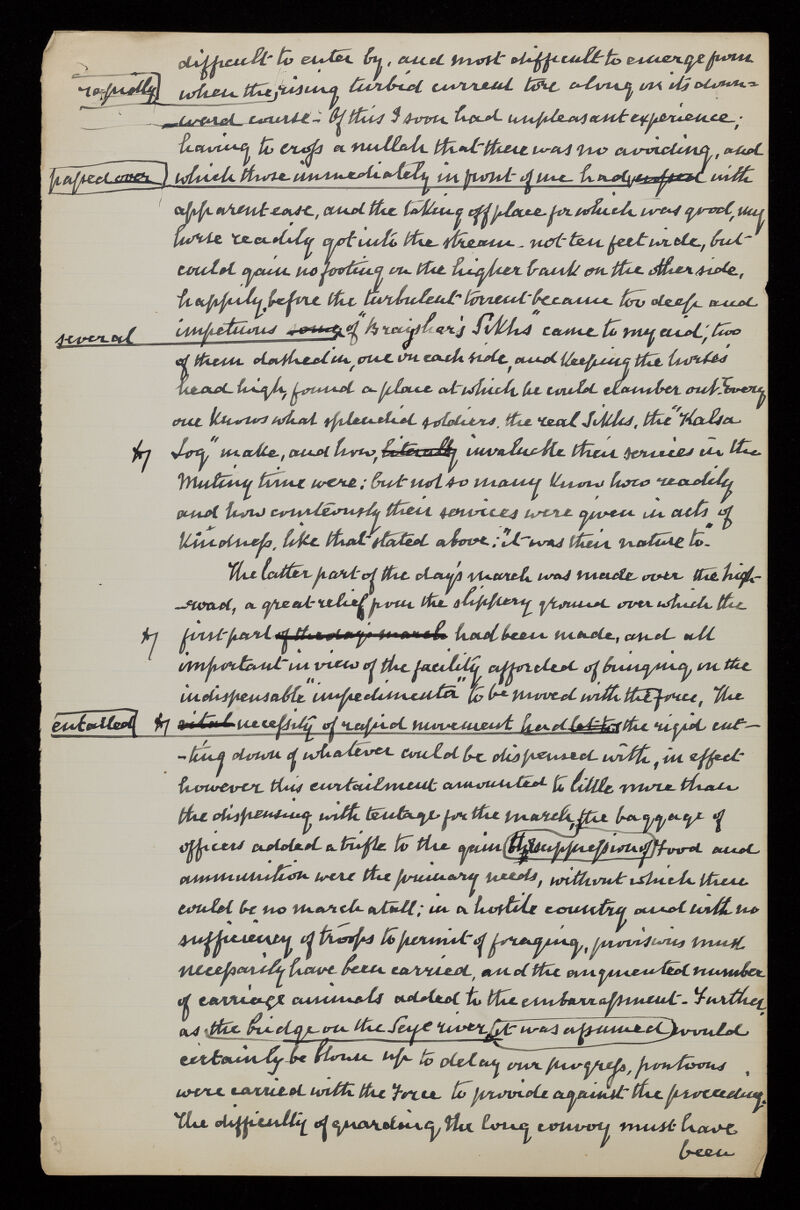 difficult to enter by, and most difficult to emerge from
rapidly
when the rising turbid current tore along on its down=
ward course - Of this I soon had unpleasant experience;
having to cross a nullah that there was no avoiding, and
passed over
which those immediately in front of me had with
apparent ease, and the taking off place for which was good, my
horse readily got into the stream - not ten feet wide, but
could gain no footing on the higher bank on the other side,
happily, before the turbulent torrent became too deep and
several
impetuous some of "Brayshar's Sikhs" came to my aid; two
of them dashed in, one on each side, and keeping the horse's
head high, found a place at which he could clamber out. Every
one knows what splendid soldiers, the real Sikhs, the "Kalsa
Log" make, and how, literally invaluable their services in the
Mutiny time were; but not so many know how readily
and how courteously their services were given in acts of
kindness, like that stated above; "it was their nature to"
The latter part of the day's march was made over the high-
-road, a great relief from the slippery ground over which the
first part of the day's march had been made, and all
important in view of the facility afforded of bringing on the
indispensable "impedimenta" to be moved with the Force, The
entailed
vital necessity of rapid movement had led to the rigid cut-
-ting down of whatever could be dispensed with, in effect
however this curtailment amounted to little more than
the dispensing with tentage for the march, the baggage of
officers added a trifle to the gain by suppression of Food and
ammunition were the primary needs, without which there
could be no march at all; in a hostile country and with no
sufficiency of troops to permit of foraging, provisions must
necessarily have been carried, and the augmented number
of carriage animals added to the embarrassment - Further,
as the bridge on the Seye river it was assumed would
certainly be blown up to delay our progress, pontoons
were carried with the Force to provide against the proceeding.
The difficulty of guarding the long convoy must have
been
3